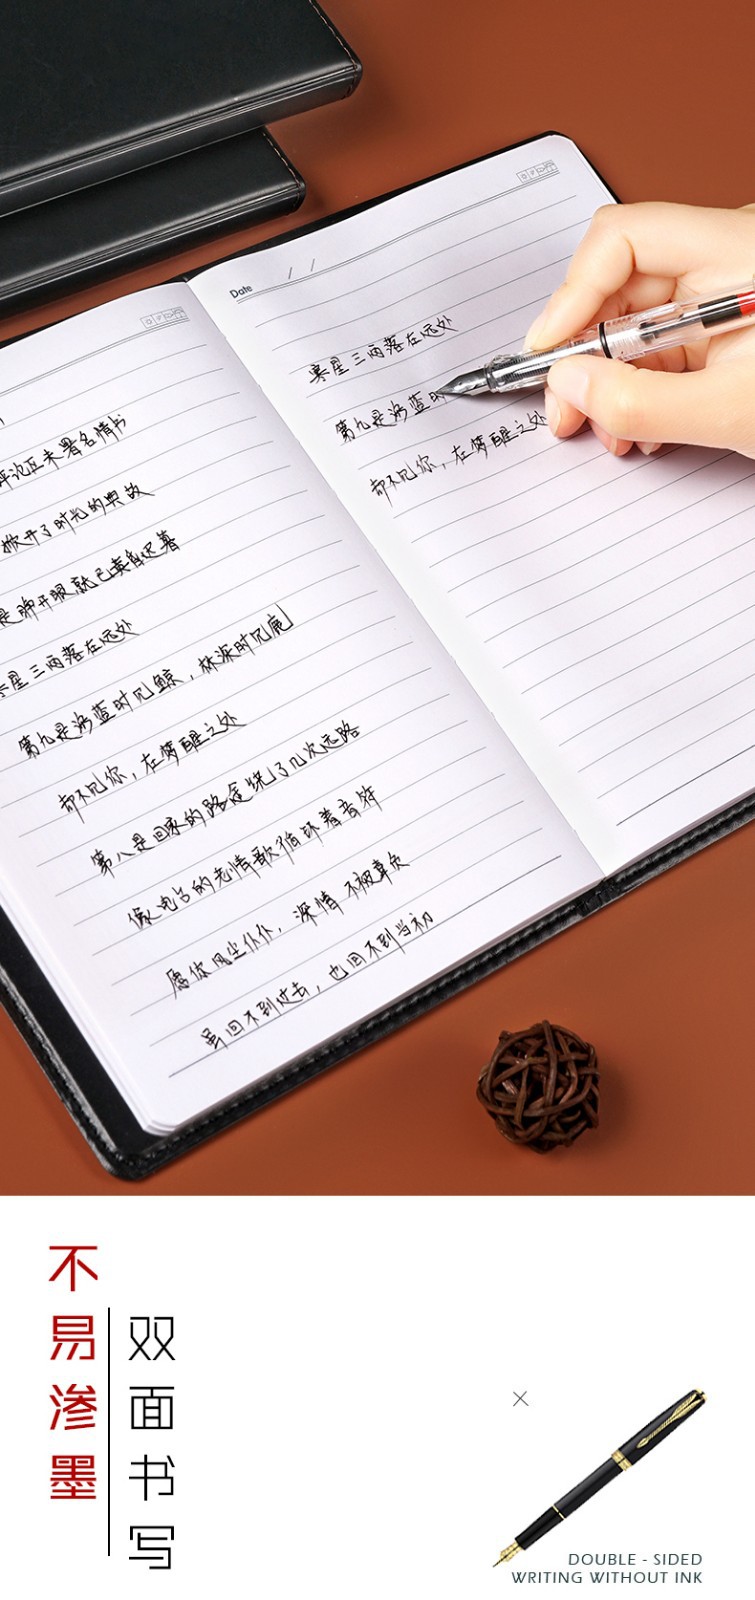 评论区未署名情书
掀开了时光的典故
是睁开眼就已
星三两落在远处
第九是海蓝时见鲸，林深时见鹿
却不见你，在梦醒之处
第八是回家的路途绕了几次远路
像电台的老情歌循环着音符
愿你风尘仆仆，深情不被辜负
虽回不到过去，也回不到当初
Date / /
星三两落在远处
第九是海蓝时
却不见你，在梦醒之处
不易渗墨
双面书写
DOUBLE - SIDED
WRITING WITHOUT INK